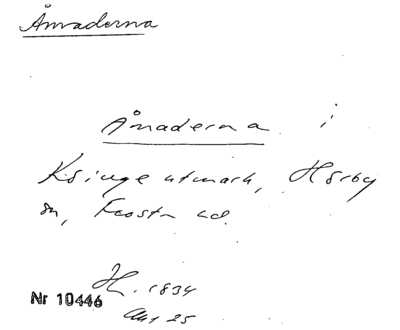 Åmaderna
Åmaderna i
Ksinge utmark, Hörby
sn, Frosta hd.
H. 1834
Akt 25
Nr 10446